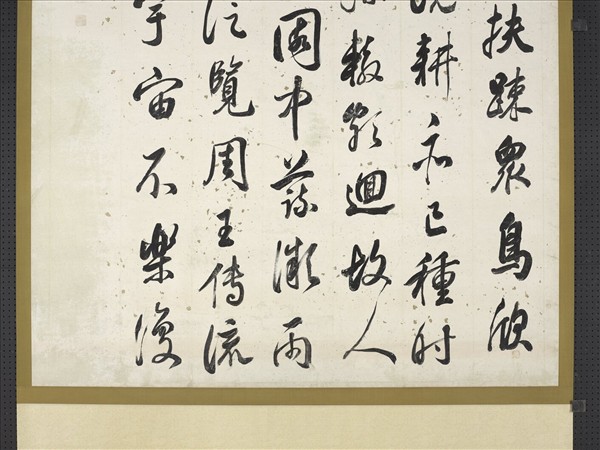 扶踈眾鳥欣
既耕亦已種时
轍頗迴故人
園中蔬微雨
泛覽周王傳流
宇宙不樂復